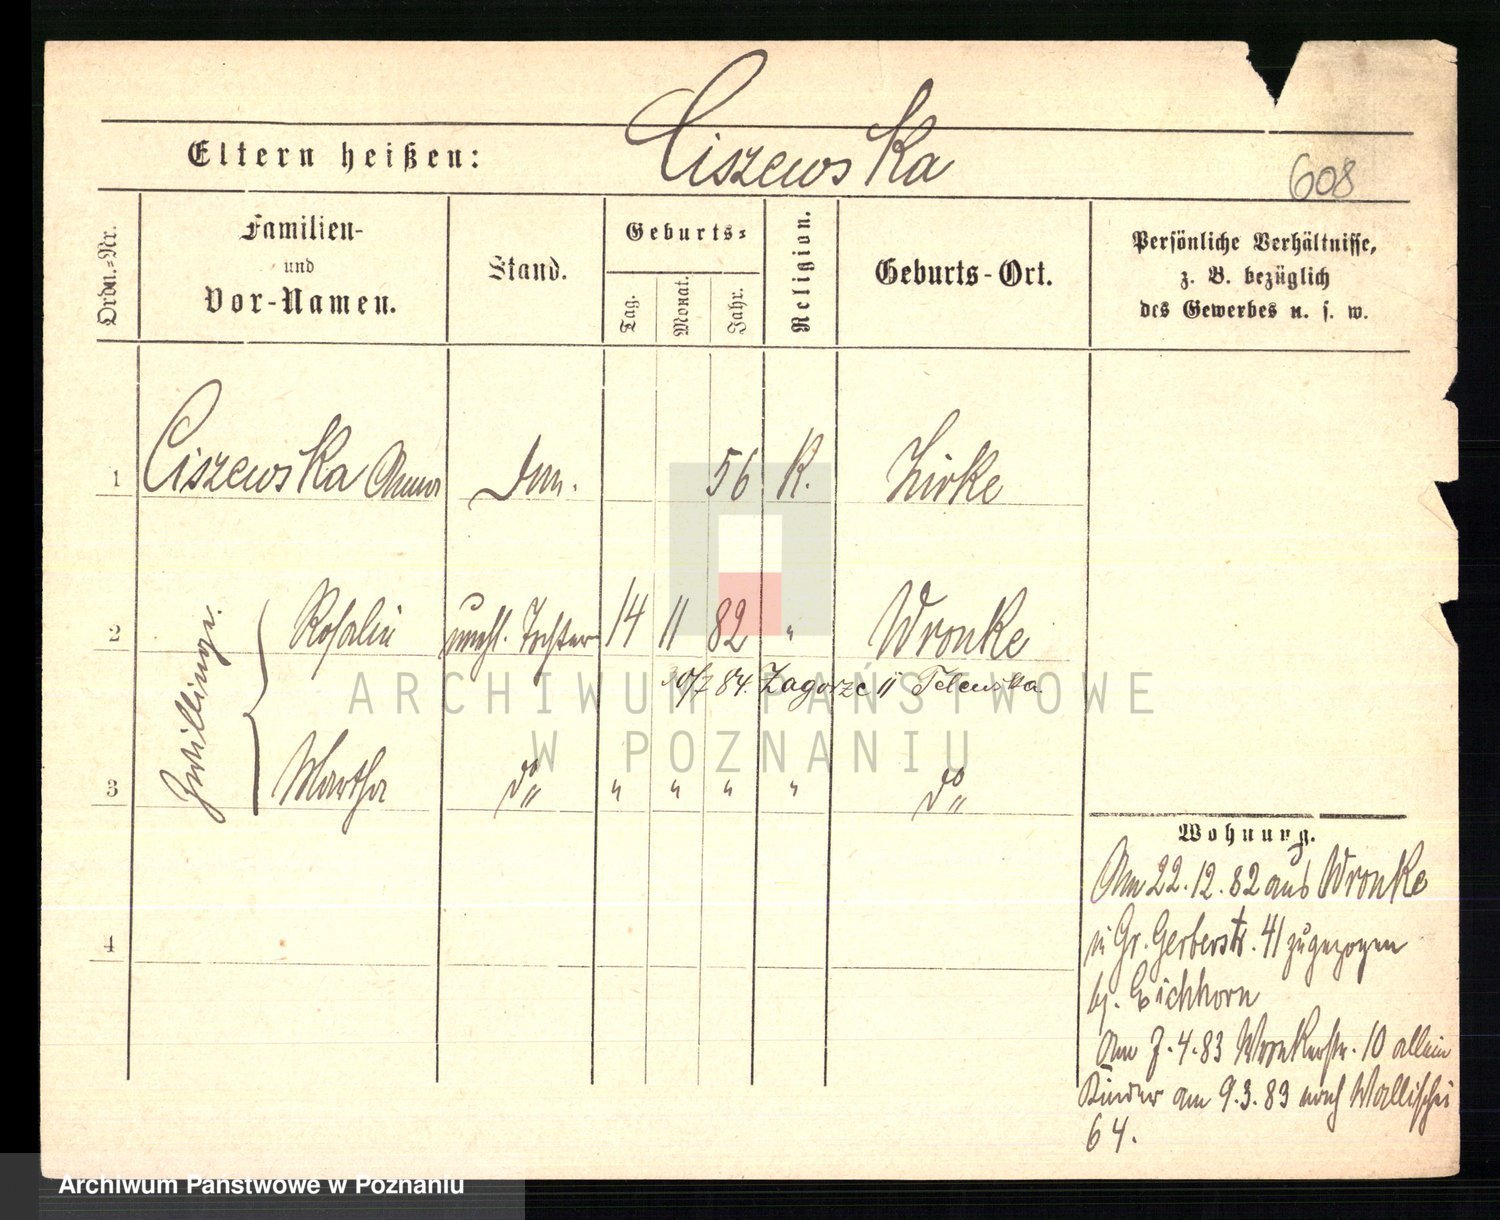 Ciszewska
Eltern heißen:
608
Ordn.-Nr.
Familien-
und
Vor-Namen.
Stand.
Geburts-
Tag.
Monat.
Jahr.
Religion.
Geburts-Ort.
Persönliche Verhältnisse,
z. B. bezüglich
des Gewerbes u. s. w.
1 Ciszewska Anna 56 K. Zirke
Zwillinge.
2 Rosalie unehl. Tochter 14 11 82 " Wronke
/7 84. Zagorze 11
3 Martha do " " " " do
4
Wohnung.
Am 22.12.82 aus Wronke
in Gr. Gerberstr. 41 zugezogen
bj. Eichhorn
Am 7.4.83 Wronkerstr. 10 allein
Kinder am 9.3.83 nach Wallischei
64.
ARCHIWUM PAŃSTWOWE
W POZNANIU
Archiwum Państwowe w Poznaniu